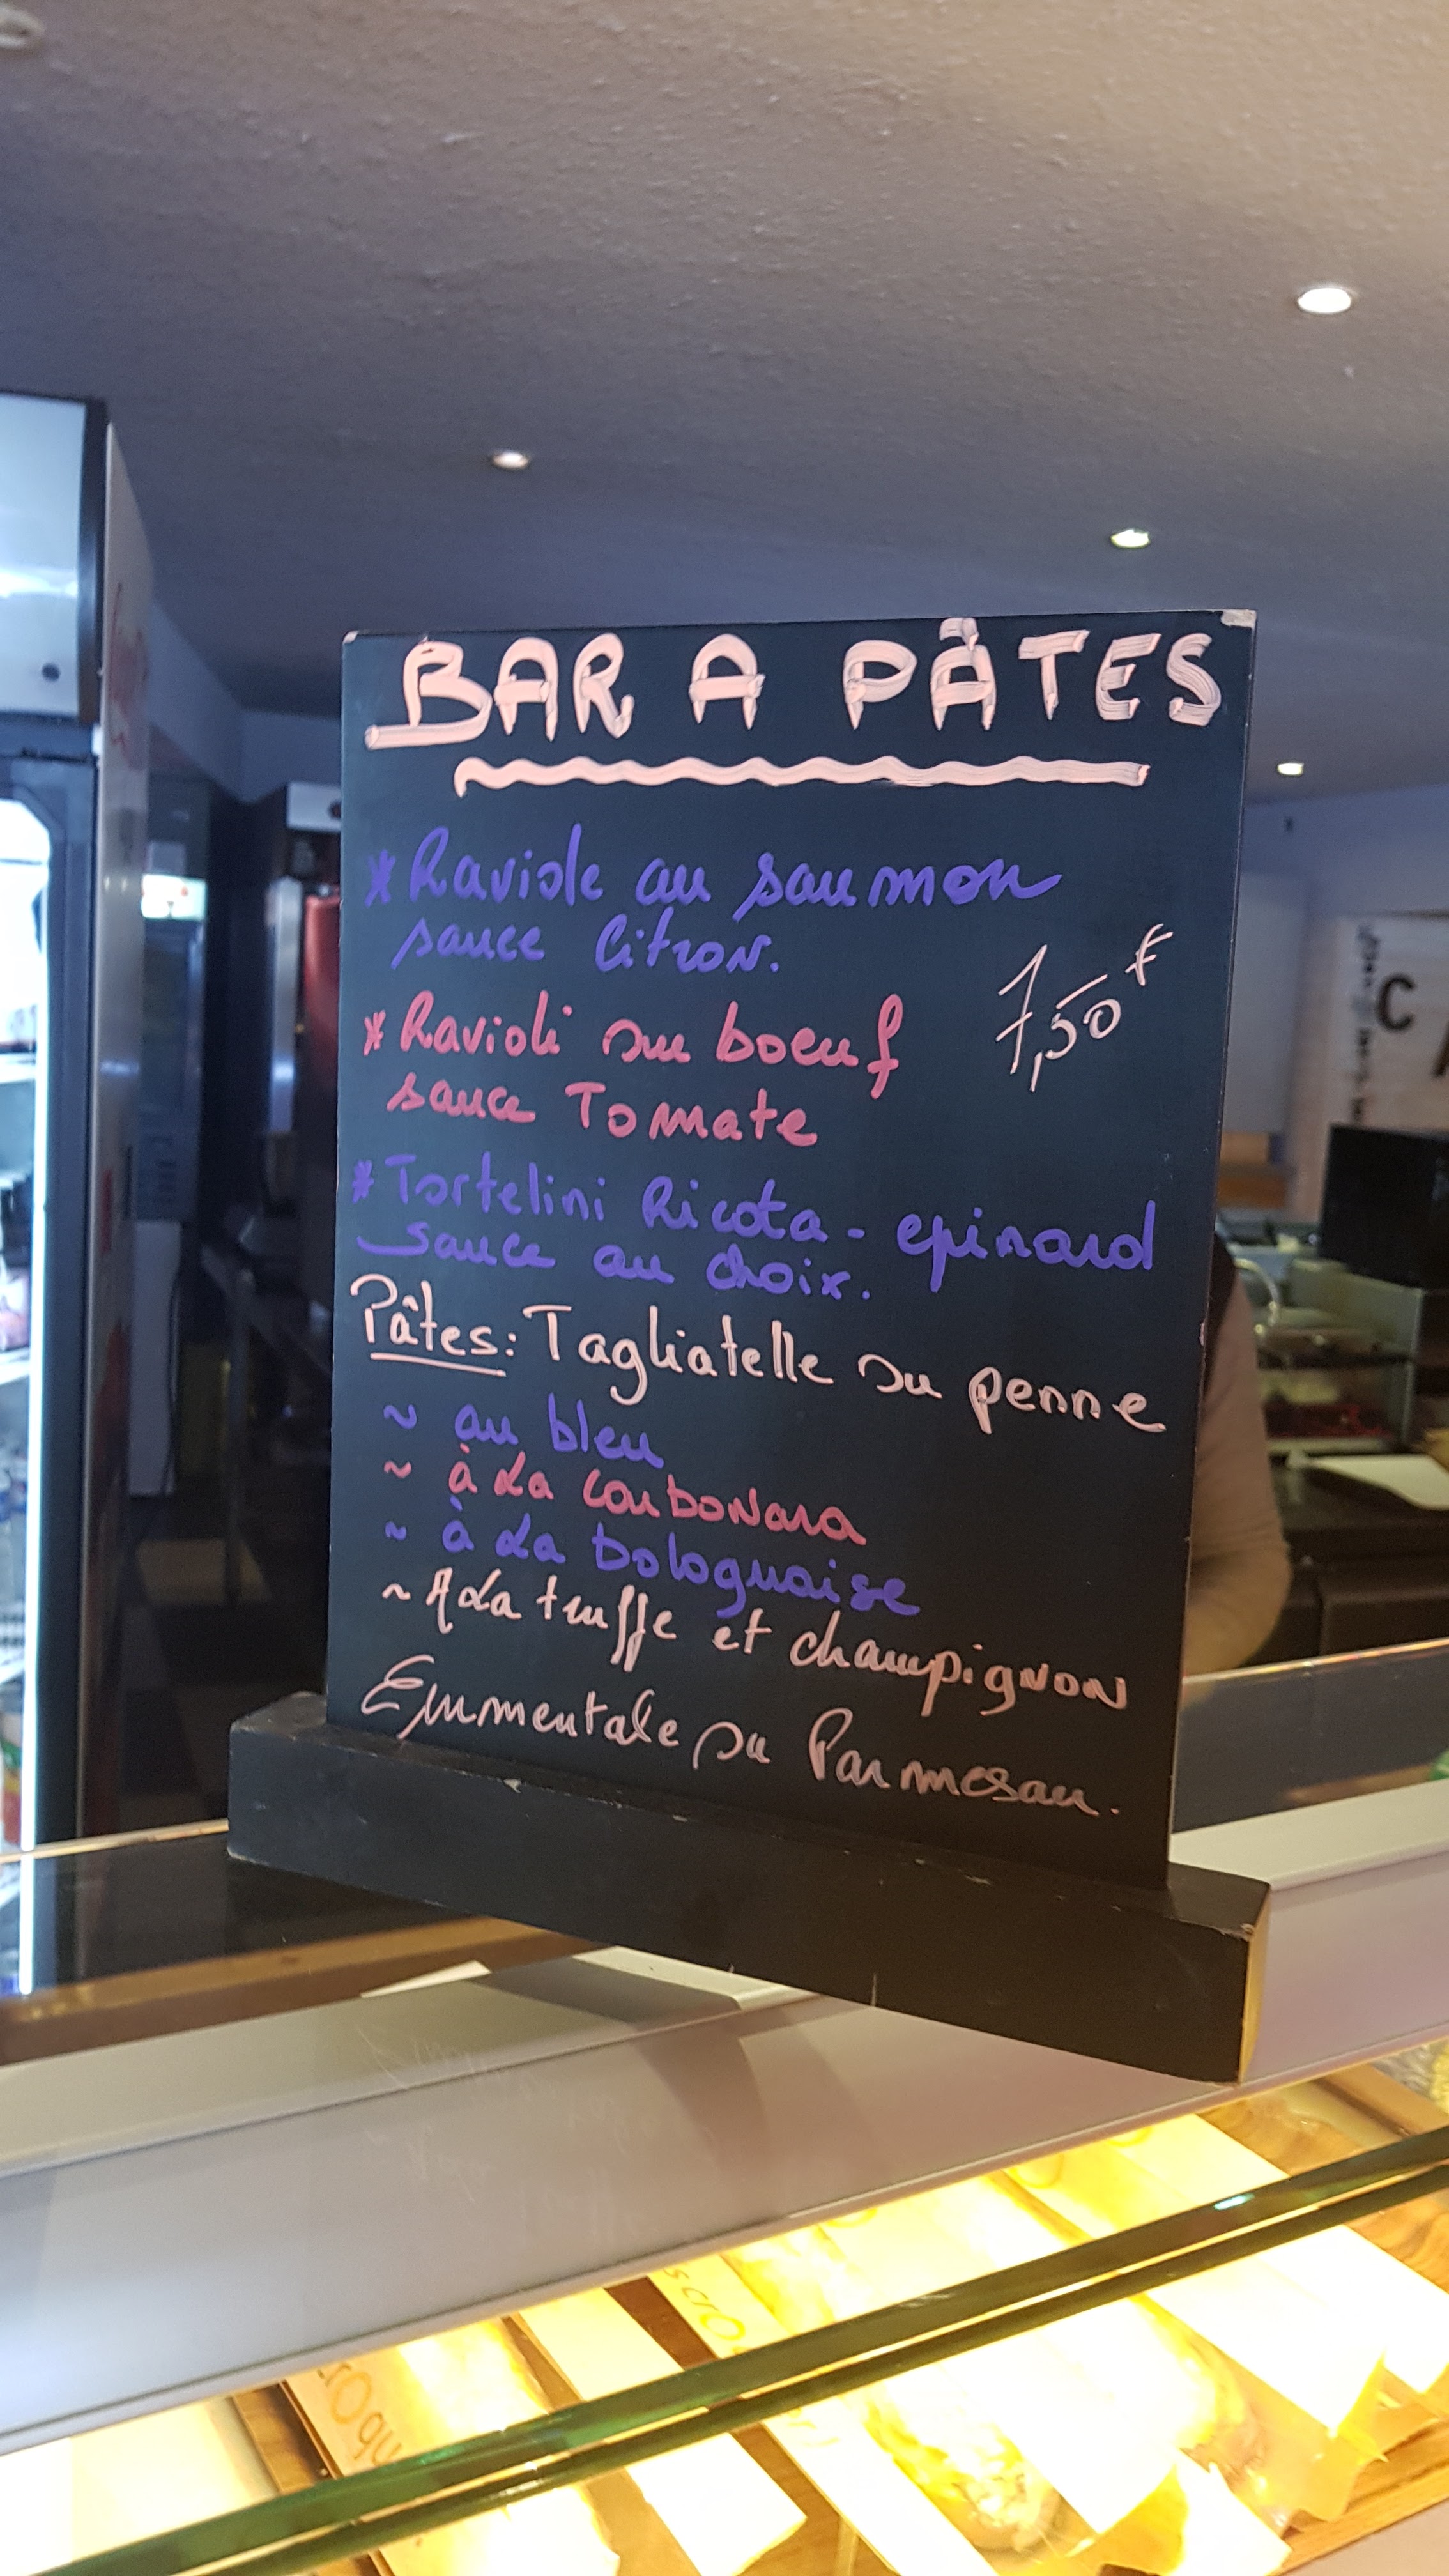 BAR A PÂTES
* Raviole au saumon
sauce Citron.
7,50€
* Ravioli au boeuf
sauce Tomate
* Tortelini Ricota - epinard
sauce au choix.
Pâtes: Tagliatelle ou penne
~ au bleu
~ à La Carbonara
~ à La bolognaise
~ A La truffe et champignon
Emmentale ou Parmesan.
C
croqu